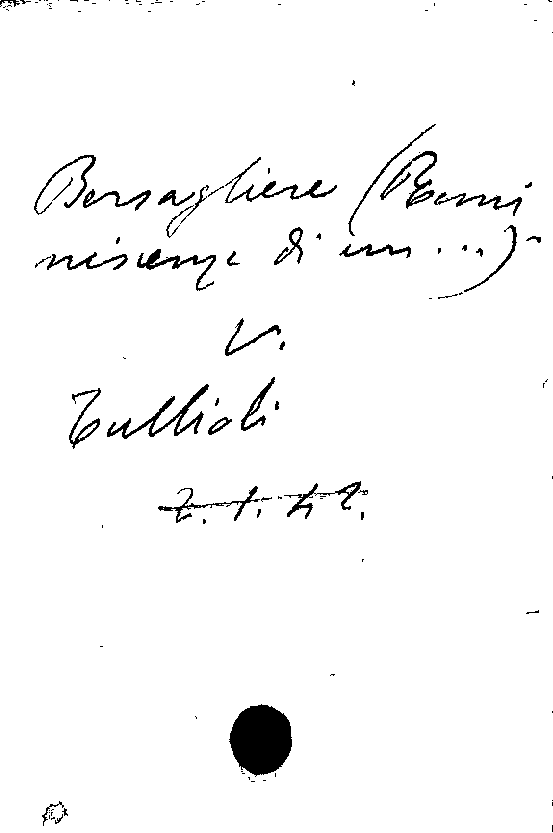 Bersagliere (Remi
niscenze di un ...)-
V.
Tullioli
2.1.42.